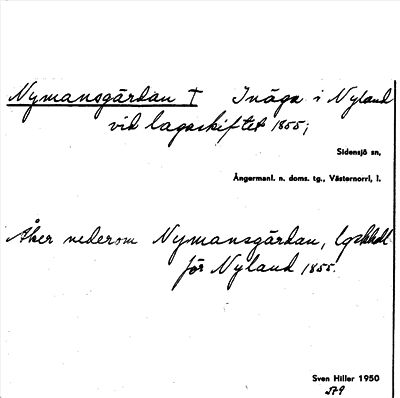 Nymansgärdan † Inäga i Nyland
vid lagaskiftet 1855;
Sidensjö sn,
Ångermanl. n. doms. tg., Västernorrl, l.
Åker nederom Nymansgärdan, lgskhdl
för Nyland 1855.
Sven Hiller 1950